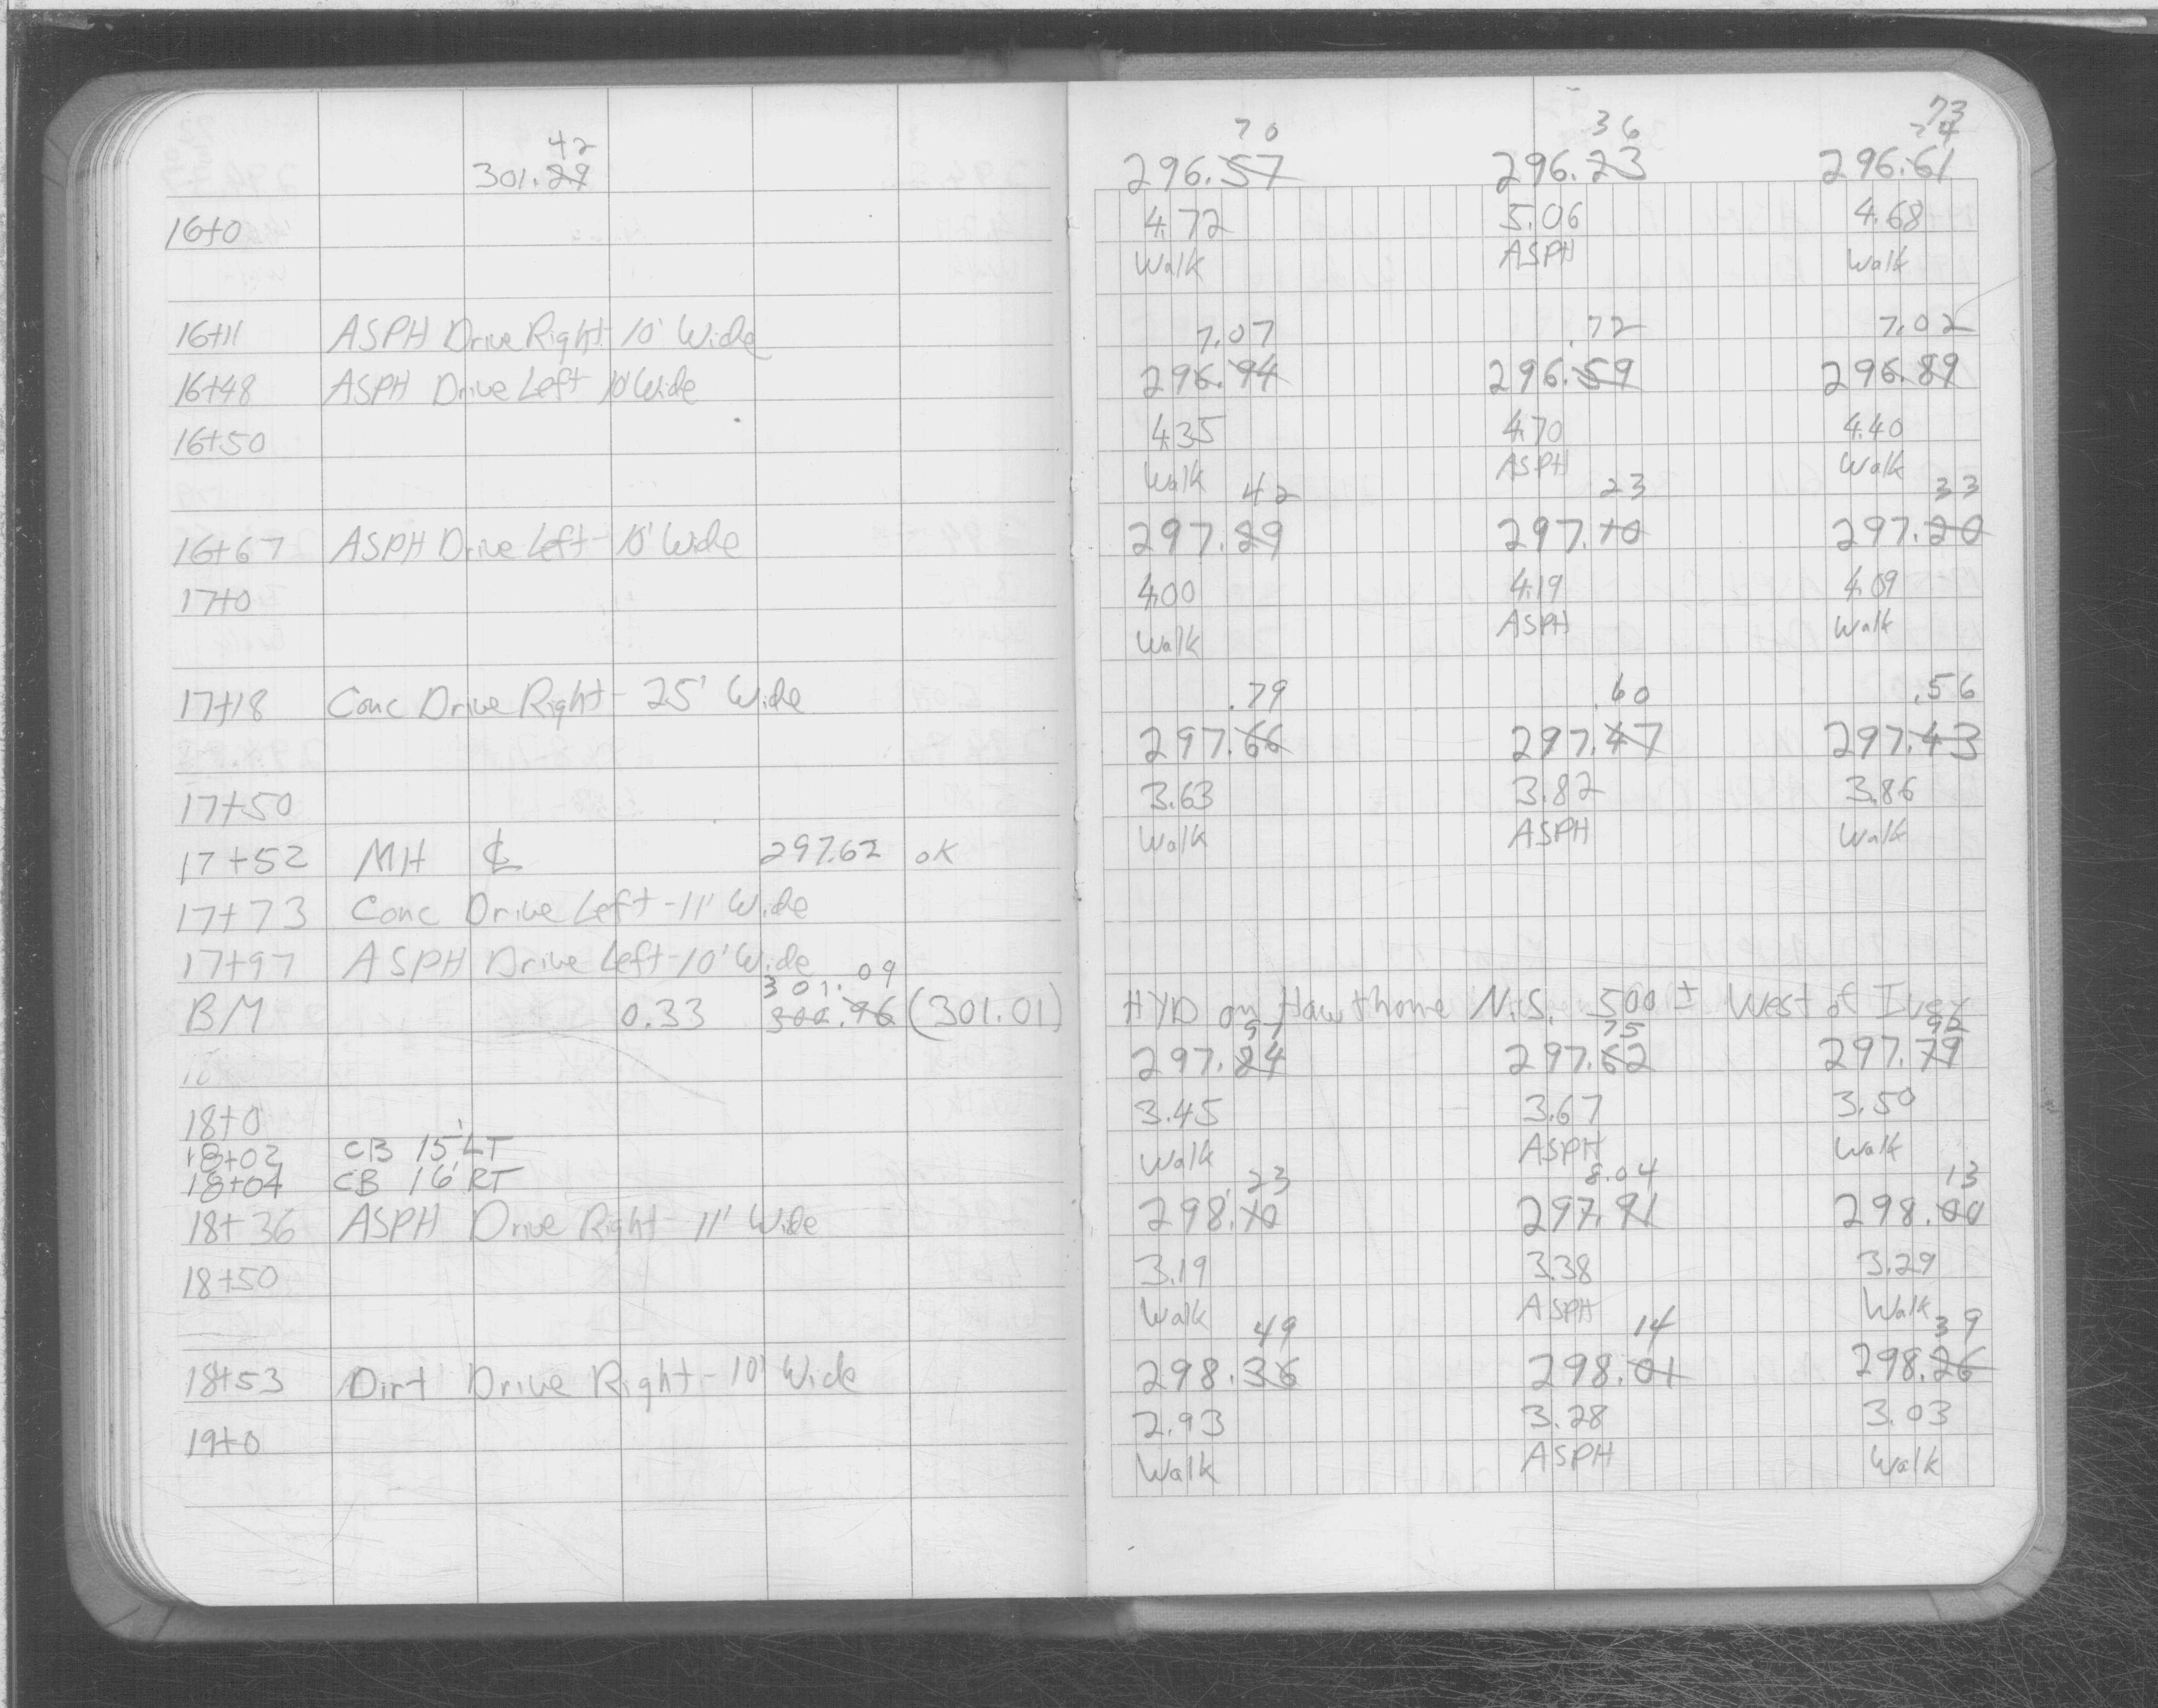 42
301.29
16+0
16+11 ASPH Drive Right- 10' Wide
16+48 ASPH Drive Left 10' Wide
16+50
16+67 ASPH Drive Left- 10' Wide
17+0
17+18 Conc Drive Right- 25' Wide
17+50
17+52 MH ℄ 297.62 OK
17+73 Conc Drive Left -11' Wide
17+97 ASPH Drive Left-10' Wide
301.09
BM 0.33 300.96 (301.01)
18+0
18+02 CB 15' LT
18+04 CB 16' RT
18+36 ASPH Drive Right- 11' Wide
18+50
18+53 Dirt Drive Right- 10' Wide
19+0
70 36 73
74
296.57 296.23 296.61
4.72 5.06 4.68
Walk ASPH Walk
7.07 .72 7.02
296.94 296.59 296.89
4.35 4.70 4.40
Walk ASPH Walk
42 23 33
297.29 297.10 297.20
4.00 4.19 4.09
Walk ASPH Walk
.79 .60 .56
297.66 297.47 297.43
3.63 3.82 3.86
Walk ASPH Walk
HYD on Hawthorne N.S. 500 ± West of Ivey
97 75 92
297.84 297.62 297.79
3.45 3.67 3.50
Walk ASPH Walk
23 8.04 13
298.10 297.91 298.00
3.19 3.38 3.29
Walk ASPH Walk
49 14 39
298.36 298.01 298.26
2.93 3.28 3.03
Walk ASPH Walk